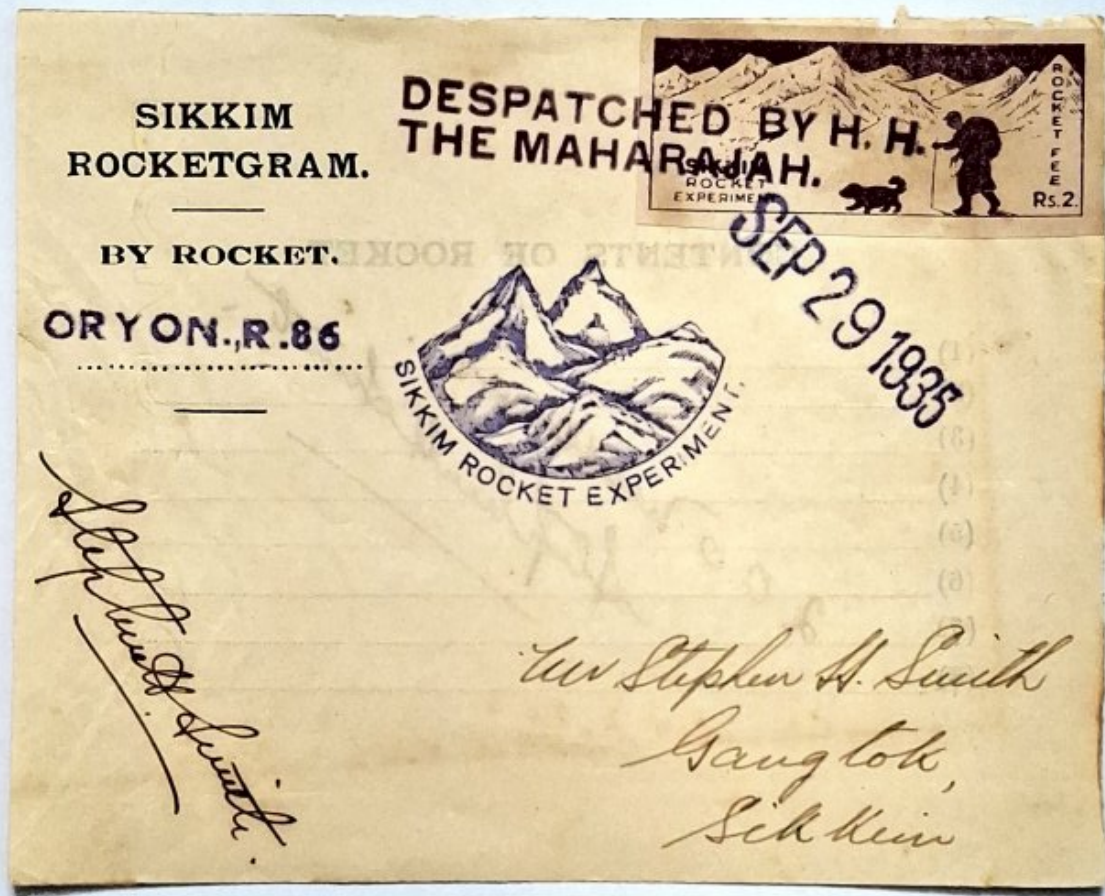 SIKKIM
ROCKETGRAM.
BY ROCKET.
ORYON.,R.86
DESPATCHED BY H. H.
THE MAHARAJAH.
SIKKIM
ROCKET
EXPERIMENT
ROCKET FEE
Rs.2.
SEP 29 1935
SIKKIM ROCKET EXPERIMENT.
Stephen H. Smith.
Mr Stephen H. Smith
Gangtok,
Sikkim
CONTENTS OF ROCKET
(1)
(3)
(4)
(5)
(6)